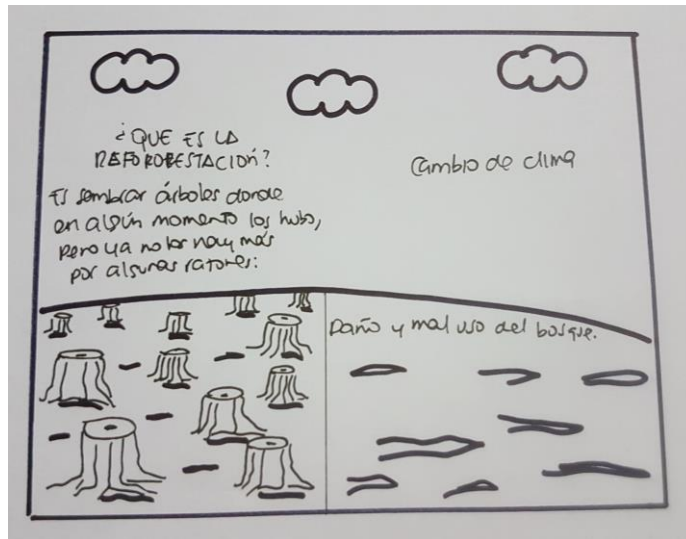 ¿QUE ES LA
REFOROBESTACIÓN?
Es sembrar árboles donde
en algún momento los hubo,
pero ya no los hay más
por algunas razones:
Cambio de clima
Daño y mal uso del bosque.